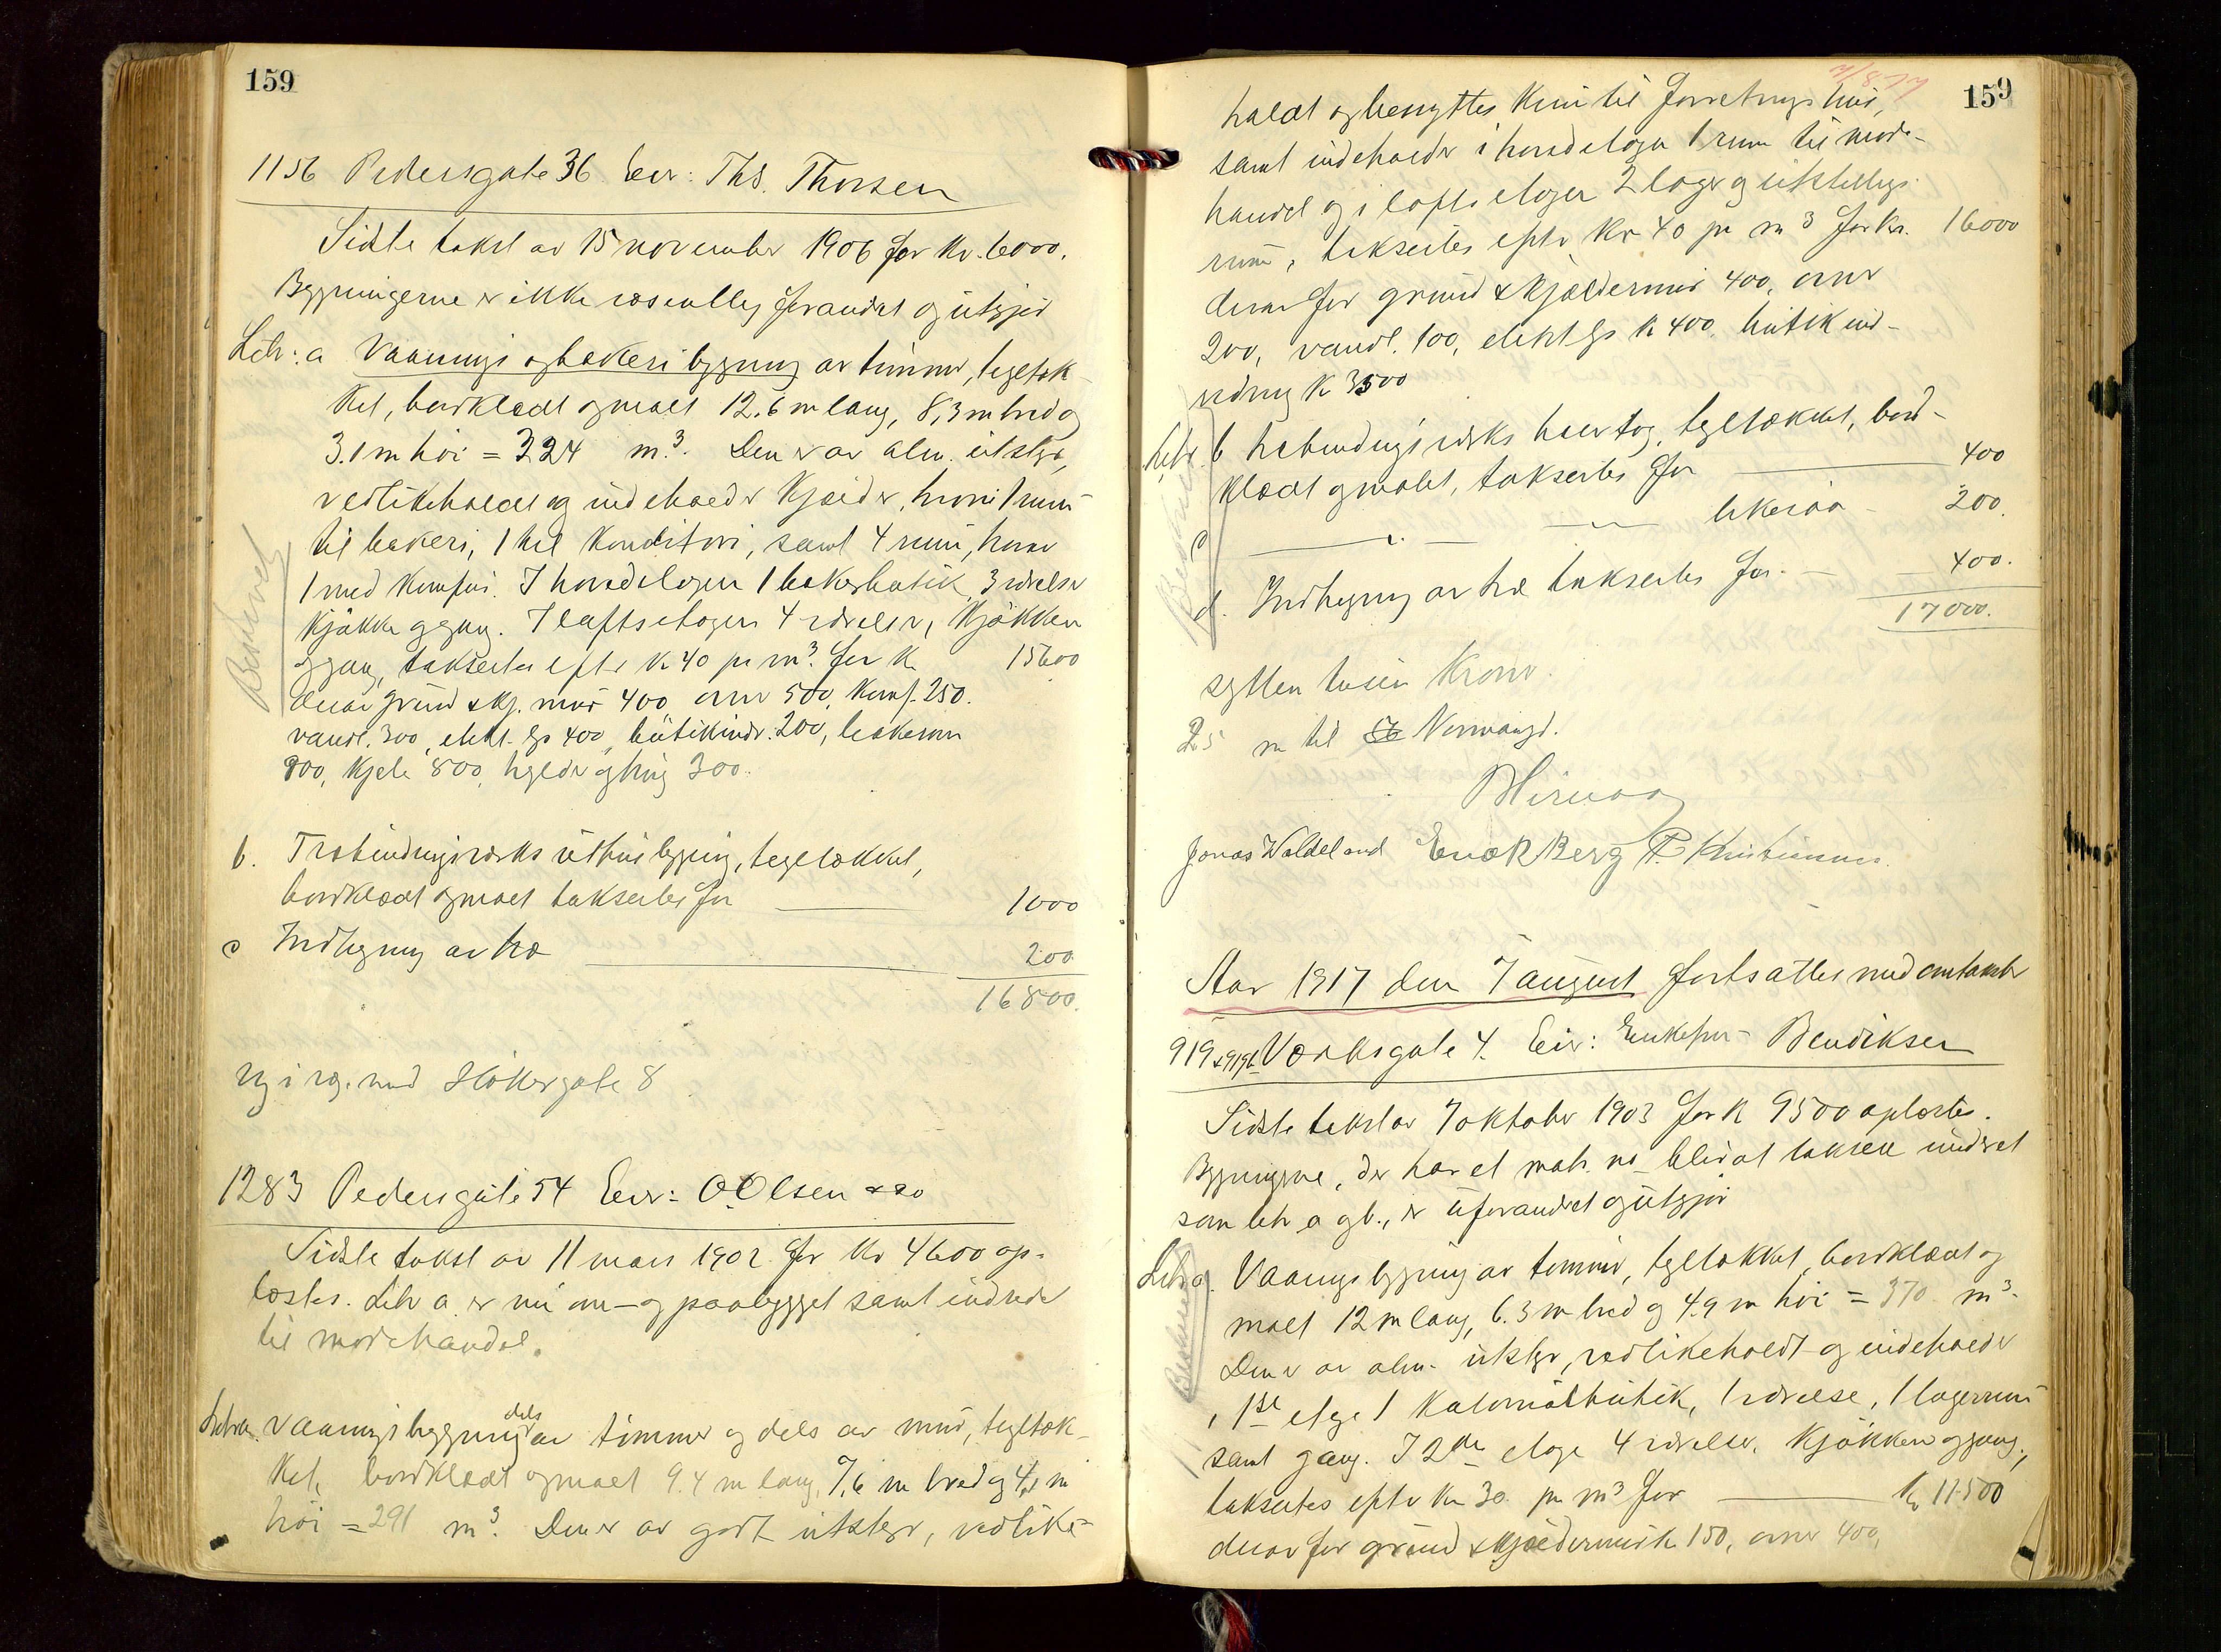 159
1156 Pedersgate 36 Eier: Ths. Thorsen
Sidste takst av 15 november 1906 for kr. 6000.
Bygningerne er ikke væsentlig forandret og utgjør
Litr: a Vaanings og bakeri bygning av tømmer, tegltæk-
ket, bordklædt og malt 12.6 m lang, 8,3 m bred og
3.1 m høi = 324 m³. Den er av alm. utstyr,
vedlikeholdt og indeholder kjælder, hvori 1 rum
til bakeri, 1 til konditori, samt 4 rum, hvorav
1 med komfur. I hovedetagen 1 bakerbutik, 3 værelser
kjøkken og gang. I loftsetagen 4 værelser, kjøkken
og gang, takseres efter kr 40 pr m³. for kr 15600
derav grund & kj. mur 400 ovner 500, komf. 250.
vandl. 300, elekt. lys 400, butikindr. 200, bakerovn
800, kjele 800, hylder og 300.
b. Træbindingsværks uthusbygning, teglstækket,
bordklædt og malt takseres for 1000
c Indhegning av træ 200
16800.
Ny i væg. med Støkergate 8
1283 Pedersgate 54 Eier: O. Olsen & co
Sidste takst av 11 mars 1902 for kr 4600 op-
læstes. Litr a er nu om- og paabygget samt indredet
til motehandel.
Litr a. Vaaningsbygning dels av tømmer og dels av mur, tegltæk-
ket, bordklædt og malt 9.4 m lang, 7,6 m bred og 4,1 m
høi = 291 m³. Den er av godt utstyr, vedlike-
159
holdt og benyttes kun til forretningshus,
samt indeholder i hovedetagen 1 rum til mode-
handel og i loftsetagen 2 lager og utstillings
rum, takseres efter kr 40 pr m³ for kr. 16000
derav for grund & kjældermur 400, ovner
200, vandl. 100, elekt lys kr 400, butikind-
redning kr 3500
Litr. b træbindingsværks, teglstækket, bord-
klædt og malt, takseres for 400
c 200.
d. Indhegning av træ takseres for 400.
17000.
sytten tusin kroner.
25 m til
Jonas Waldeland Enok Berg P. Kristiansen.
Aar 1917 den 7 august fortsattes med omtakster
919 & 919b Verksgate 4. Eier: Enkefru Bendiksen
Sidste takst av 7 oktober 1903 for kr 9500 oplæstes.
Bygningerne, der har et matr. no blivat taksert undret
som litr a og b., er uforandret og utgjør
Litr a. Vaaningsbygning av tømmer, teglstækket, bordklædt og
malt 12 m lang, 6.3 m bred og 4.9 m høi = 370 m³.
Den er av alm. utstyr, vedlikeholdt og indeholder
i 1ste etage 1 kolonialbutik, 1 værelse, 1 lagerrum
samt gang. I 2den etage 4 værelser, kjøkken og gang,
takseres efter kr 30 pr m³ for kr 11500
derav for grund & kjældermur kr 150, ovner 400,